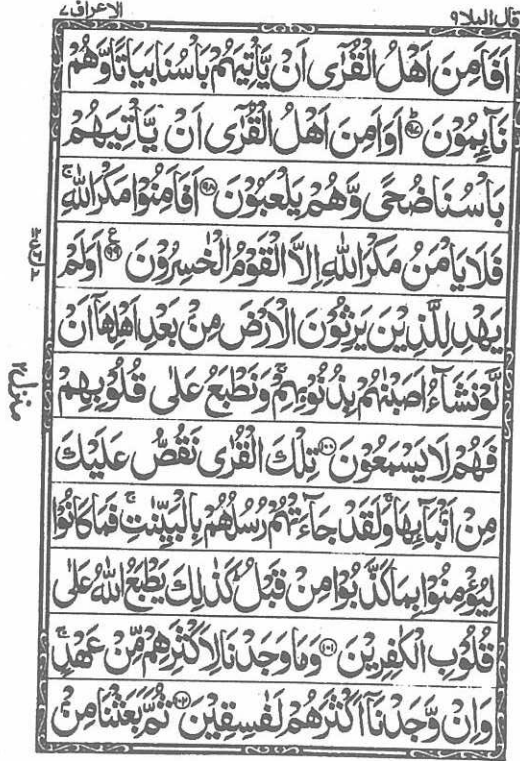 قال الملا٩ الاعراف٧
اَفَاَمِنَ اَهْلُ الْقُرٰٓى اَنْ يَّاْتِيَهُمْ بَاْسُنَا بَيَاتًا وَّهُمْ
نَآئِمُوْنَ ۹۷ اَوَاَمِنَ اَهْلُ الْقُرٰٓى اَنْ يَّاْتِيَهُمْ
بَاْسُنَا ضُحًى وَّهُمْ يَلْعَبُوْنَ ۹۸ اَفَاَمِنُوْا مَكْرَ اللّٰهِ ۚ
فَلَا يَاْمَنُ مَكْرَ اللّٰهِ اِلَّا الْقَوْمُ الْخٰسِرُوْنَ ۹۹ ع اَوَلَمْ
يَهْدِ لِلَّذِيْنَ يَرِثُوْنَ الْاَرْضَ مِنْۢ بَعْدِ اَهْلِهَاۤ اَنْ
لَّوْ نَشَآءُ اَصَبْنٰهُمْ بِذُنُوْبِهِمْ ۚ وَنَطْبَعُ عَلٰى قُلُوْبِهِمْ
فَهُمْ لَا يَسْمَعُوْنَ ۱۰۰ تِلْكَ الْقُرٰى نَقُصُّ عَلَيْكَ
مِنْ اَنْۢبَآئِهَا ۚ وَلَقَدْ جَآءَتْهُمْ رُسُلُهُمْ بِالْبَيِّنٰتِ ۚ فَمَا كَانُوْا
لِيُؤْمِنُوْا بِمَا كَذَّبُوْا مِنْ قَبْلُ ؕ كَذٰلِكَ يَطْبَعُ اللّٰهُ عَلٰى
قُلُوْبِ الْكٰفِرِيْنَ ۱۰۱ وَمَا وَجَدْنَا لِاَكْثَرِهِمْ مِّنْ عَهْدٍ ۚ
وَاِنْ وَّجَدْنَاۤ اَكْثَرَهُمْ لَفٰسِقِيْنَ ۱۰۲ ثُمَّ بَعَثْنَا مِنْۢ
منزل۲